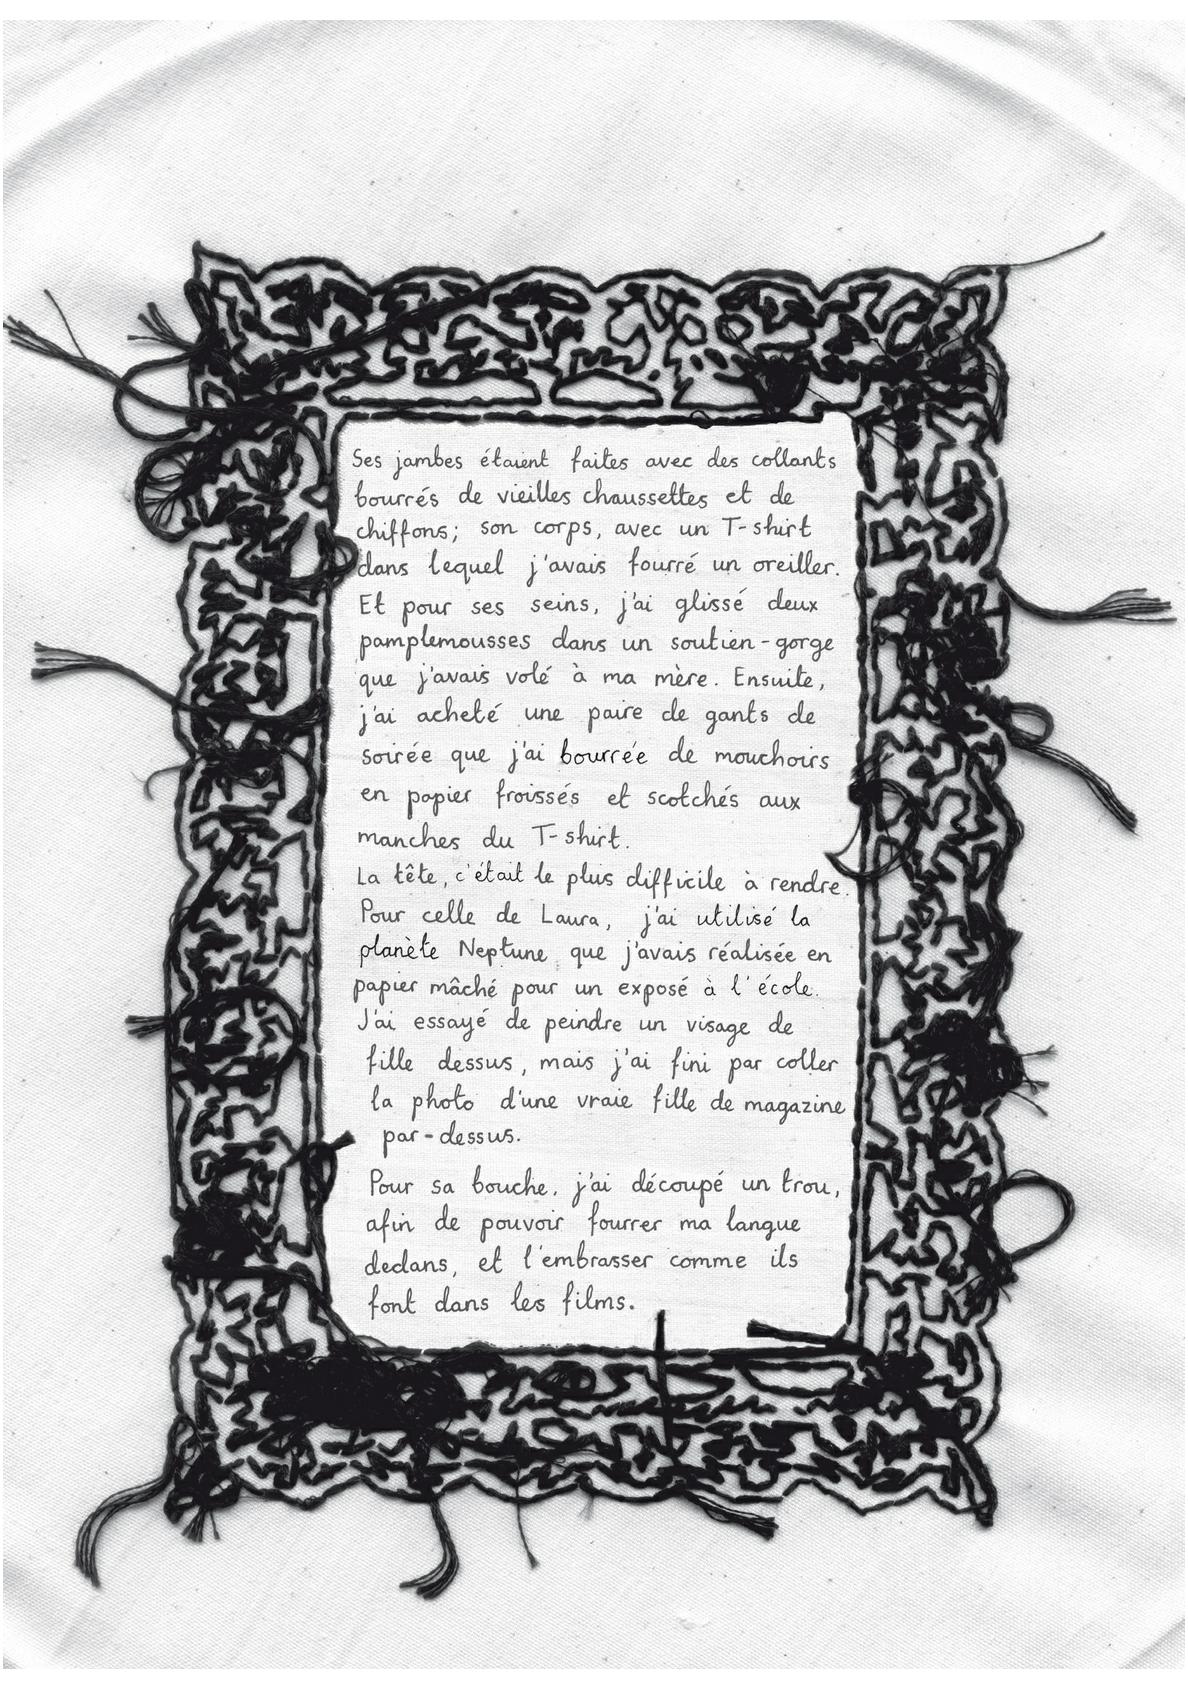 Ses jambes étaient faites avec des collants
bourrés de vieilles chaussettes et de
chiffons; son corps, avec un T-shirt
dans lequel j'avais fourré un oreiller.
Et pour ses seins, j'ai glissé deux
pamplemousses dans un soutien-gorge
que j'avais volé à ma mère. Ensuite,
j'ai acheté une paire de gants de
soirée que j'ai bourrée de mouchoirs
en papier froissés et scotchés aux
manches du T-shirt.
La tête, c'était le plus difficile à rendre.
Pour celle de Laura, j'ai utilisé la
planète Neptune que j'avais réalisée en
papier mâché pour un exposé à l'école.
J'ai essayé de peindre un visage de
fille dessus, mais j'ai fini par coller
la photo d'une vraie fille de magazine
par-dessus.
Pour sa bouche, j'ai découpé un trou,
afin de pouvoir fourrer ma langue
dedans, et l'embrasser comme ils
font dans les films.